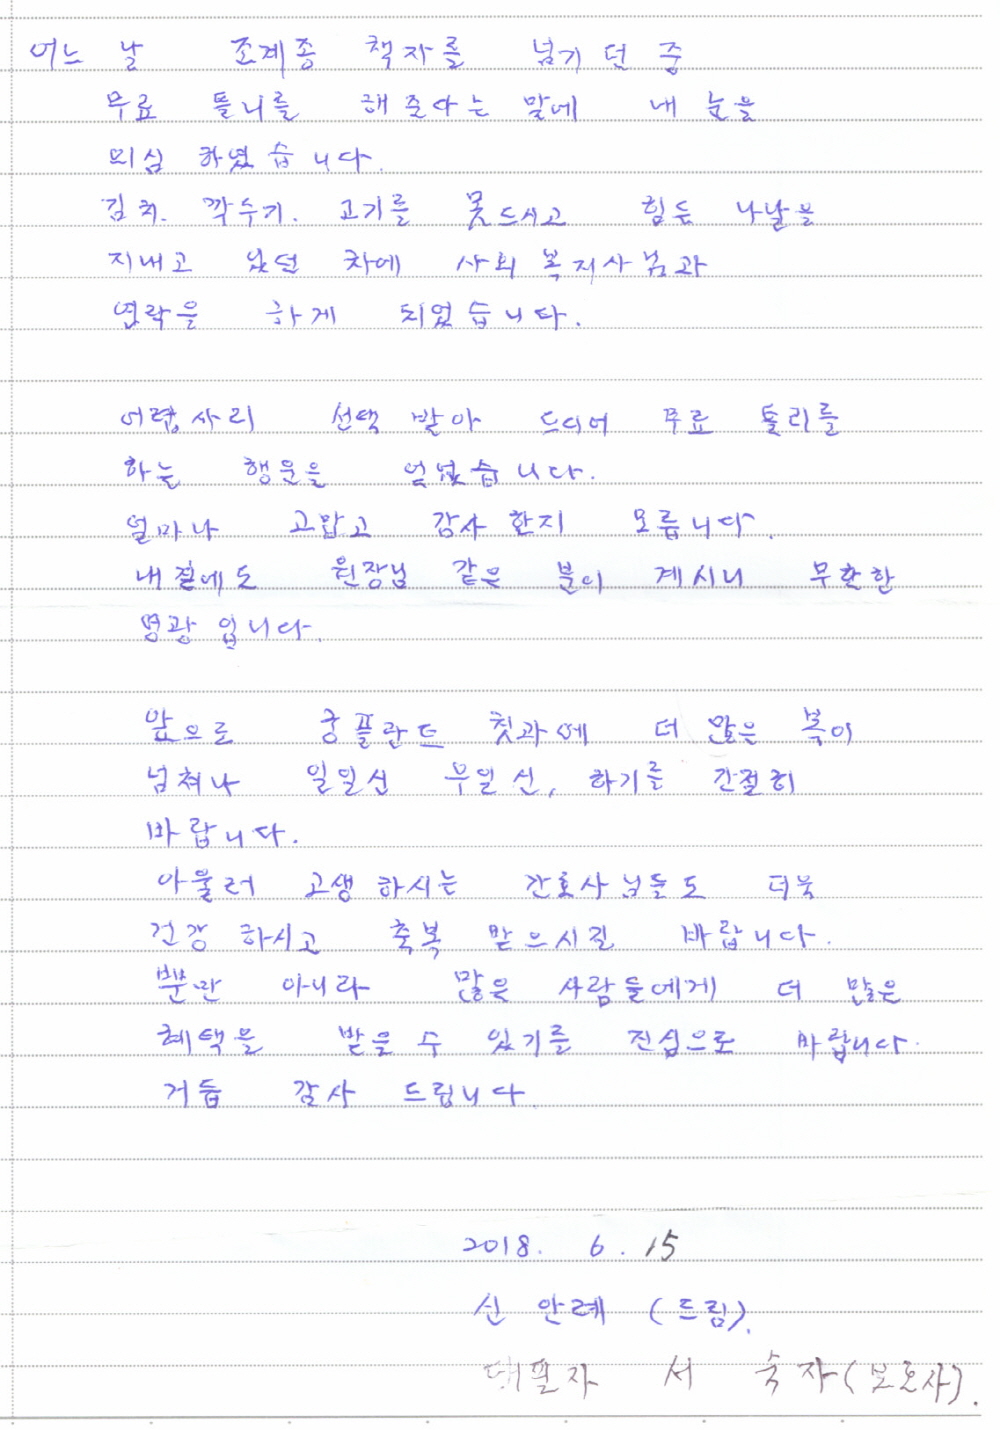 어느 날 조계종 책자를 넘기던 중
무료 틀니를 해준다는 말에 내 눈을
의심 하였습니다.
김치. 깍두기. 고기를 못드시고 힘든 나날을
지내고 있던 차에 사회복지사님과
연락을 하게 되었습니다.
어렵사리 선택 받아 드디어 무료 틀리를
하는 행운을 얻었습니다.
얼마나 고맙고 감사한지 모릅니다.
내 절에도 원장님 같은 분이 계시니 무한한
영광 입니다.
앞으로 궁플란트 칫과에 더 많은 복이
넘쳐나 일일신 우일신, 하기를 간절히
바랍니다.
아울러 고생하시는 간호사님들도 더욱
건강 하시고 축복 받으시길 바랍니다.
뿐만 아니라 많은 사람들에게 더 많은
혜택을 받을 수 있기를 진심으로 바랍니다.
거듭 감사 드립니다.
2018. 6. 15
신 안례 (드림).
대필자 서 숙자(보호사).